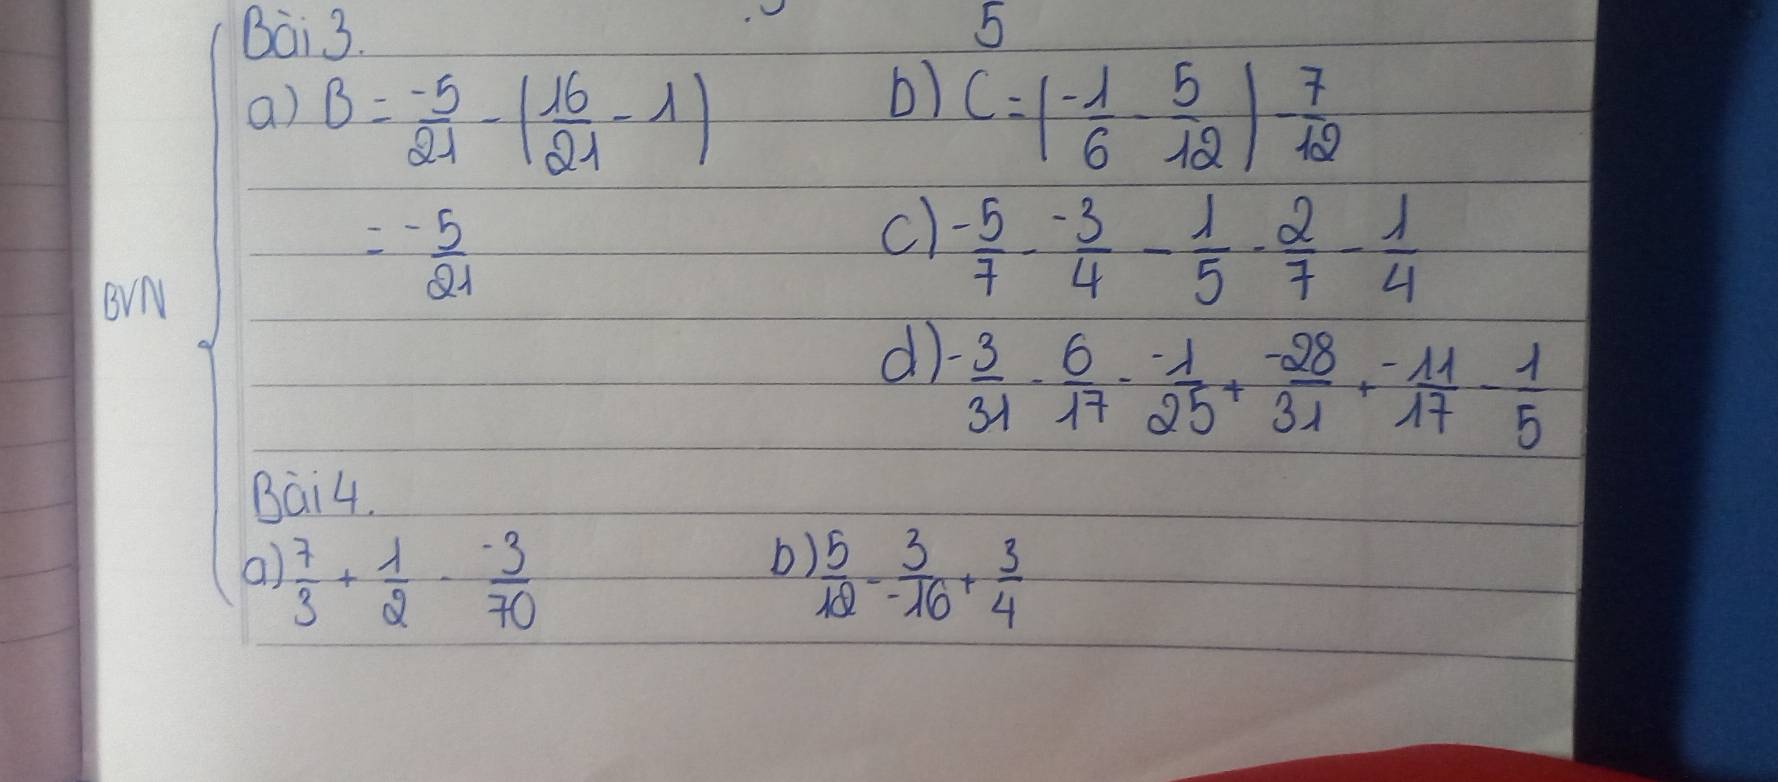 5
Bài 3.
a) B = -5/21 - (16/21 - 1)
= -5/21
b) C = (-1/6 - 5/12) - 7/12
c) -5/7 - -3/4 - 1/5 - 2/7 - 1/4
d) -3/31 - 6/17 - -1/25 + -28/31 + -11/17 - 1/5
BVN
Bài 4.
a) 7/3 + 1/2 - -3/70
b) 5/12 - 3/-16 + 3/4